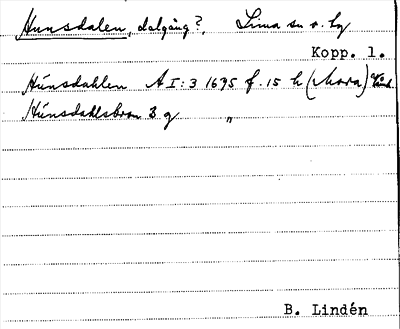 Hunsdalen, dalgång?, Lima sn o. by
Kopp. l.
Húnsdahlen A I:3 1695 f. 15 h (Mora)
Húnsdahlsbron 3 g "
B. Lindén